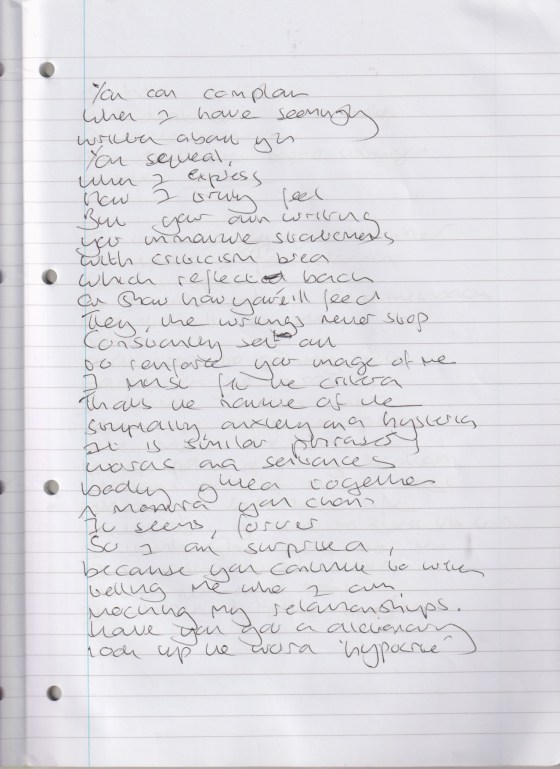 You can complain
when I have seemingly
written about you
You squeal,
when I express
how I truly feel
But your own writing
your immature statements
with criticism
which reflect back
or show how you
They, the writings never stop
Constantly set out
to renforce your image of me
I must fit the criteria
thats the nature of the
stupidity, anxiety and hysteria
It is similar phrases
words and sentances
badly glued together
A mantra you chant
It seems, forever
So I am surprised,
because you continue to write
telling me who I am,
mocking my relationships.
have you got a dictionary
look up the word 'hypocrite'